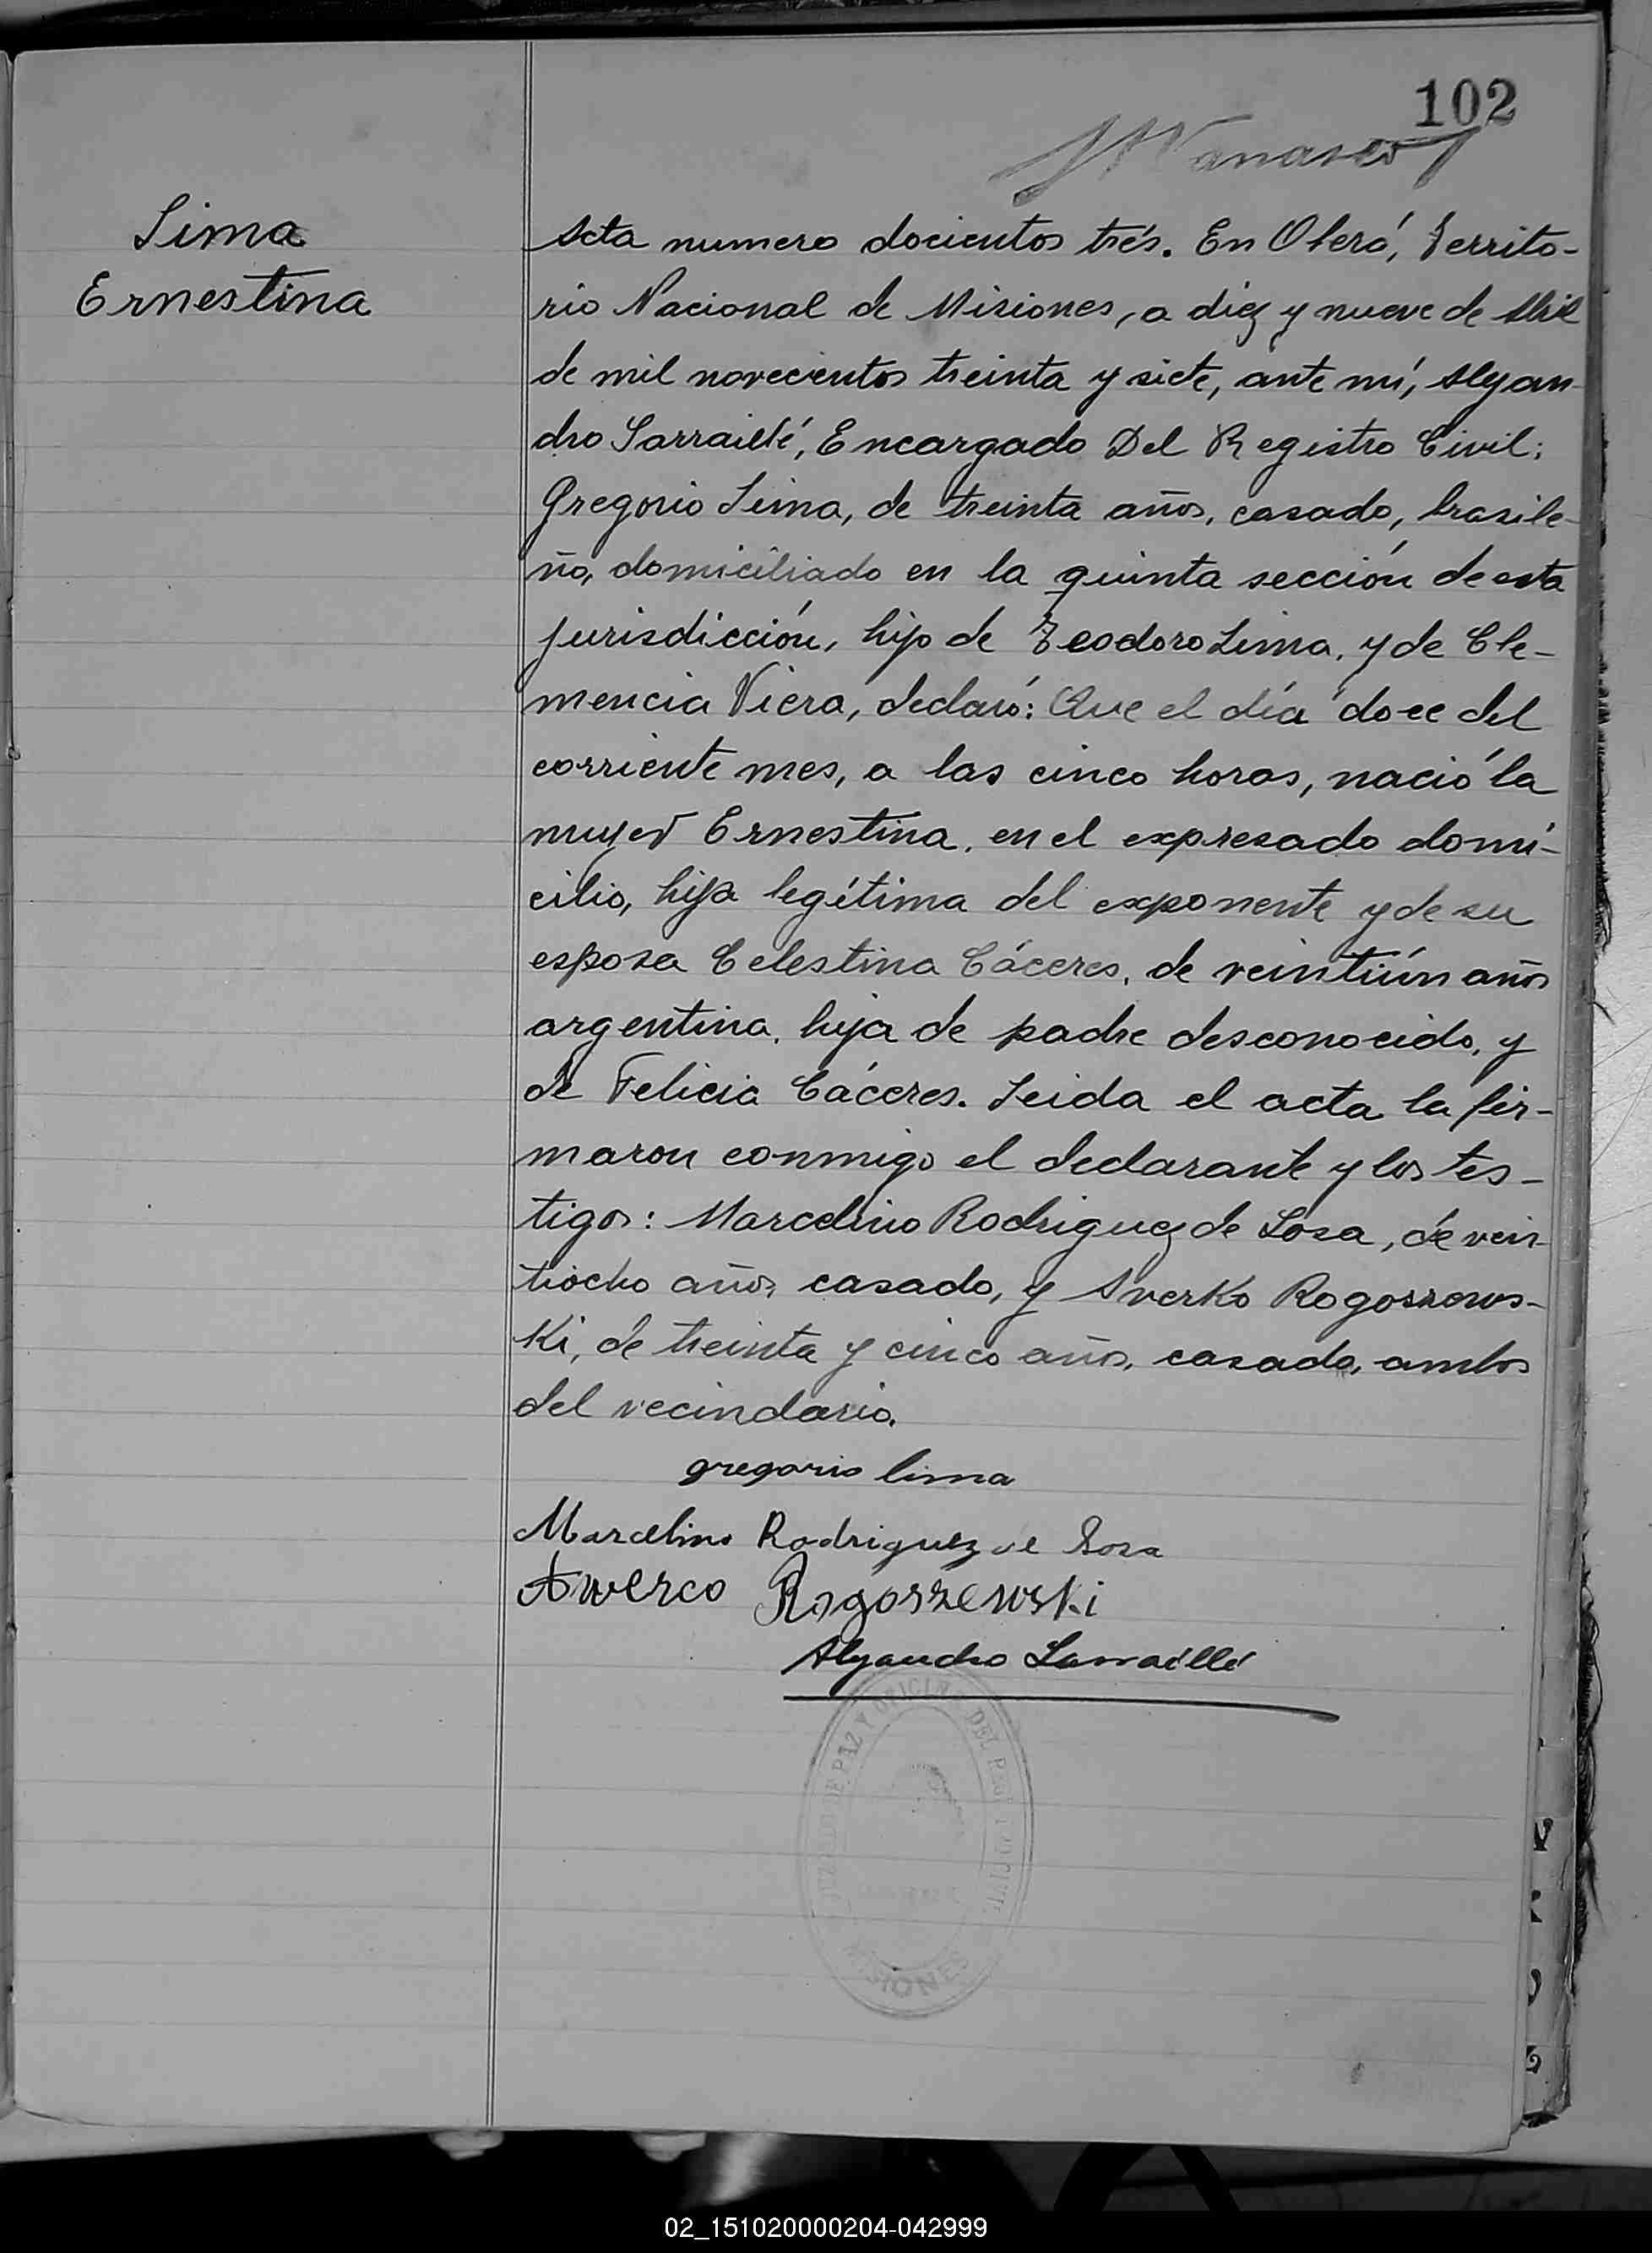 102
Lima
Ernestina
Acta numero docientos trés. En Oberá, Territo-
rio Nacional de Misiones, a diez y nueve de Abril
de mil novecientos treinta y siete, ante mí, Alejan-
dro Larraillé, Encargado Del Registro Civil:
Gregorio Lima, de treinta años, casado, brasile-
ño, domiciliado en la quinta sección de esta
jurisdicción, hijo de Teodoro Lima, y de Cle-
mencia Viera, declaró: Que el día doce del
corriente mes, a las cinco horas, nació la
mujer Ernestina, en el expresado domi-
cilio, hija legítima del exponente y de su
esposa Celestina Cáceres, de veintiún años
argentina, hija de padre desconocido, y
de Felicia Cáceres. Leida el acta la fir-
maron conmigo el declarante y los tes-
tigos: Marcelino Rodriguez de Sosa, de vein-
tiocho años, casado, y Averko Rogoszews-
Ki, de treinta y cinco años, casado, ambos
del vecindario.
gregorio lima
Marcelino Rodriguez de Sosa
Awerco Rogoszewski
Alejandro Larraillé
JUZGADO DE PAZ Y OFICINA DEL REGISTRO CIVIL
MISIONES
02_151020000204-042999